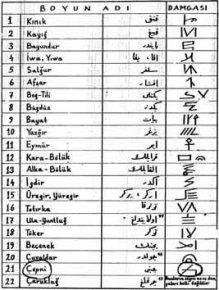 BOYUN ADI DAMGASI
1 Kınık قنق
2 Kayığ قيغ
3 Bayundur بايندر
4 Iwa, Yıwa
5 Salğur سلغر
6 Afşar افشار
7 Beg-Tili بكتلى
8 Bügdüz بكدز
9 Bayat بيات
10 Yazğır يزغر
11 Eymür ايمر
12 Kara-Bölük قرابلك
13 Alka-Bölük القابلك
14 İğdir اكدر
15 Üregir, Yüregir
16 Totırka توترقا
17 Ula-Yundluğ
18 Töker توكر
19 Beçenek بجنك
20 Çuvaldar جولدر
21 Çepni جبنى
22 Çaruklug جرقلغ